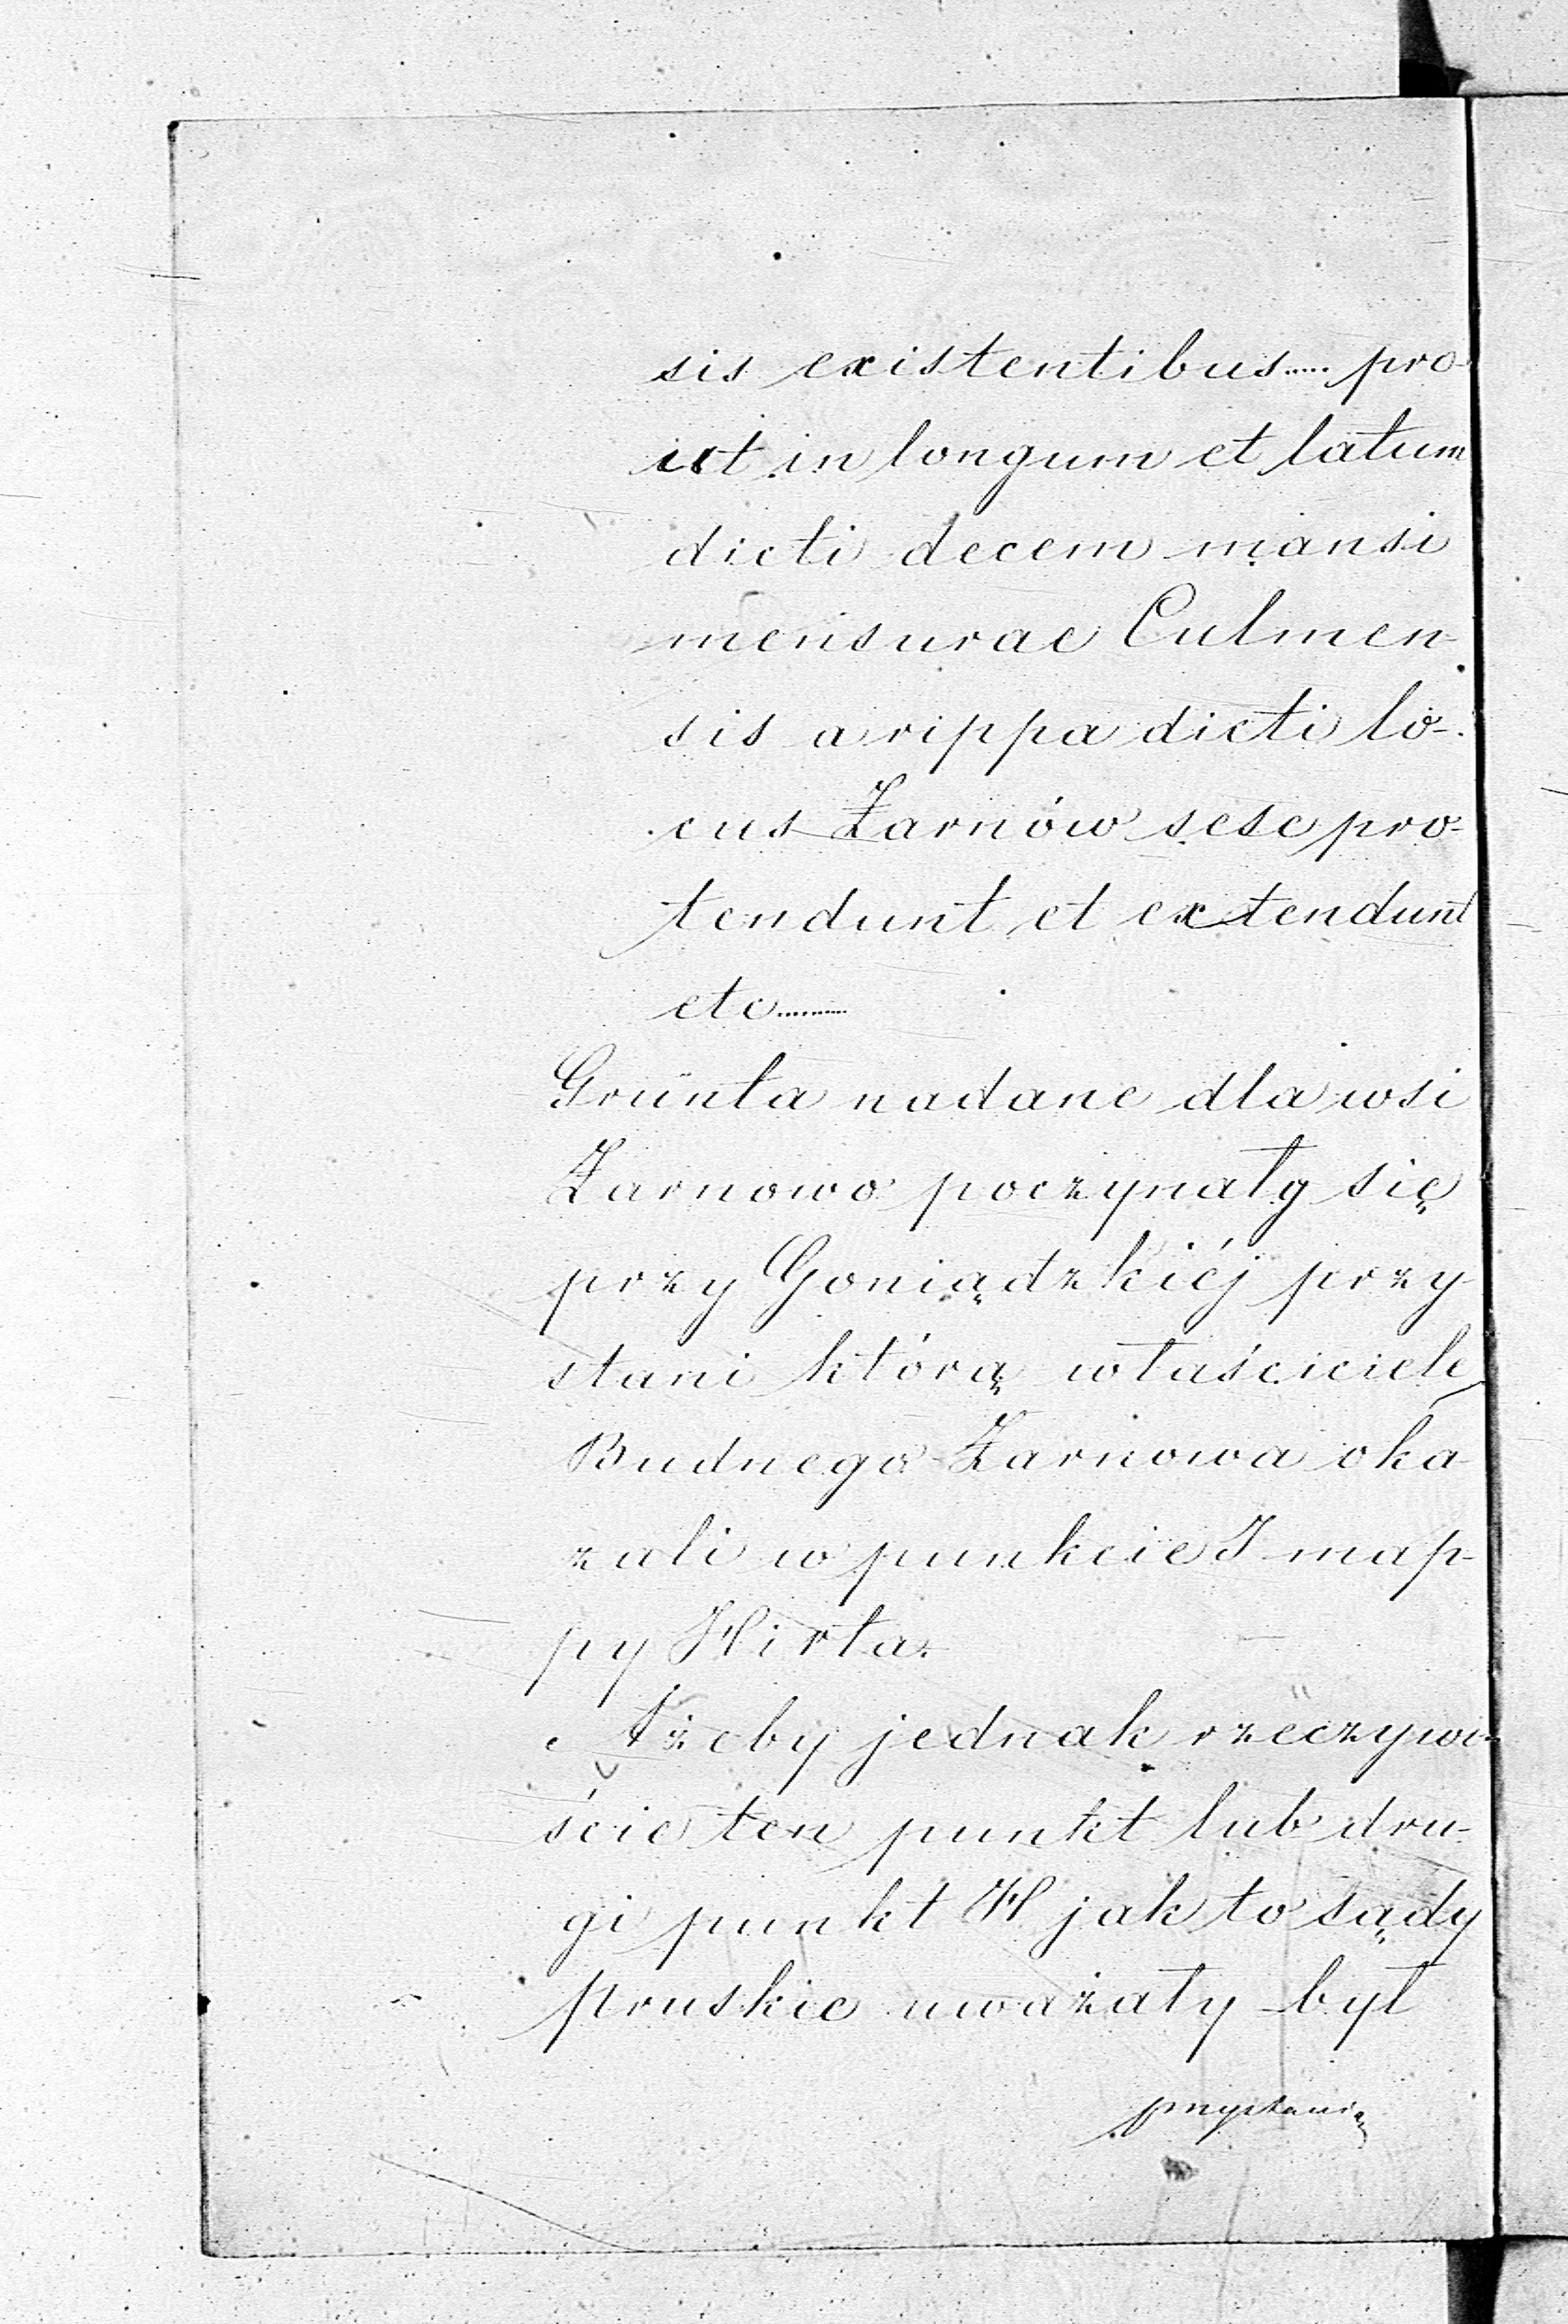 sis existentibus..... pro-
ut in longum et latum
dicti decem mansi
mensurae Culmen-
sis a rippa dicti lo-
cus Żarnów sese pro-
tendunt et extendunt
etc..........
Grunta nadane dla wsi
Żarnowo poczynały się
przy Goniądzkiéj przy-
stani którą właściciele
Budnego Żarnowa oka-
zali w punkcie J map-
py Hirta.
Ażeby jednak rzeczywi-
ście ten punkt lub dru-
gi punkt H jak to sądy
pruskie uważały był
przystanią